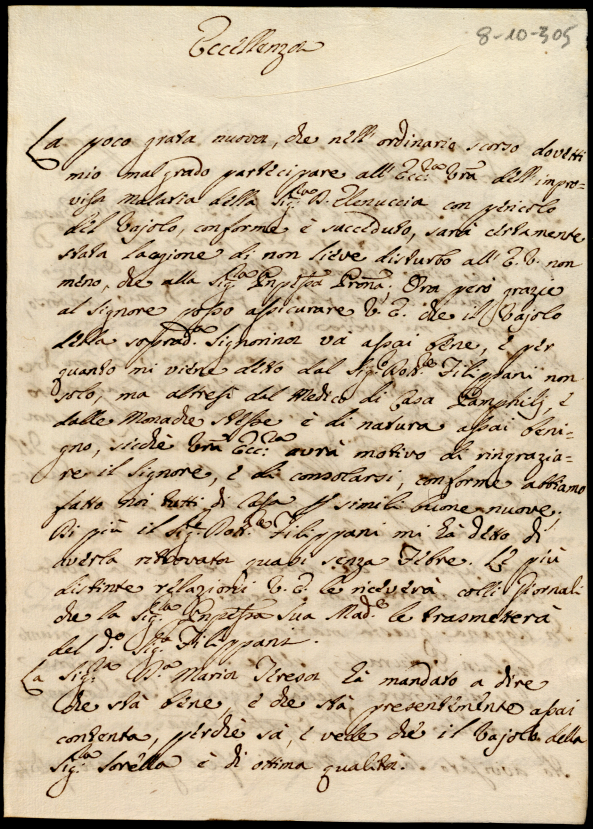 8-10-305
Eccellenza
La poco grata nuova, che nell'ordinario scorso dovetti
mio malgrado partecipare all'Ecc:za Vrã dell'impro-
visa malatia della Sig:ra D. Elenuccia con pericolo
del Vajolo, conforme è succeduto, sarà certamente
stata cagione di non lieve disturbo all'E.V. non
meno, che alla Sig:ra Pnp̃essa Pronã. Ora però grazie
al Signore posso assicurare V.E. che il Vajolo
della soprad:ta Signorina va assai bene, e per
quanto mi viene detto dal Sig:r Dott:e Filippani non
solo, ma altresì dal Medico di Casa Pamphilj, e
dalle Monache stesse è di natura assai beni-
gno, sicchè Vrã Ecc:za avrà motivo di ringrazia-
re il Signore, e di consolarsi, conforme abbiamo
fatto noi tutti di Casa p simili buone nuove.
Di più il Sig:r Dott:e Filippani mi hà detto di
averla ritrovata quasi senza febre. Le più
distinte relazioni V.E. le riceverà colli Giornali
che la Sig:ra Pnp̃essa Sua Mad:e le trasmetterà
del d:o Sig:r Filippani.
La Sig:ra D:a Maria Teresa hà mandato a dire
che stà bene, e che stà presentemente assai
contenta, perchè sà, e vede che il Vajolo della
Sig:ra Sorella è di ottima qualità.